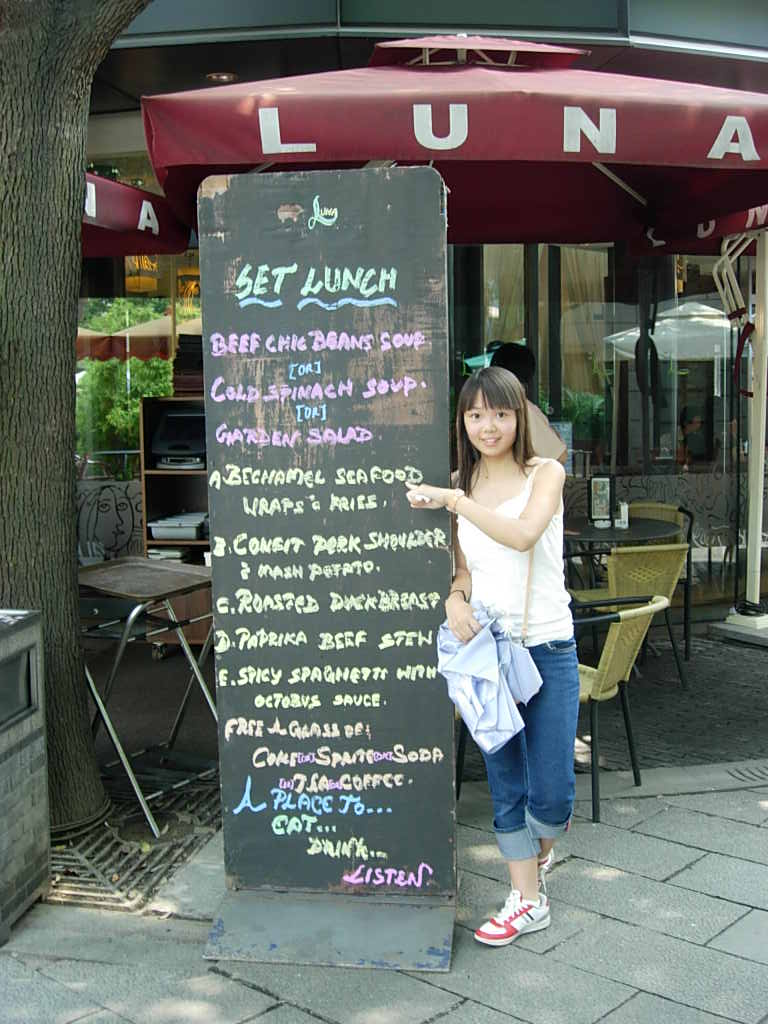 LUNA
NA
LUNA
Luna
SET LUNCH
BEEF CHIC BEANS SOUP
[OR]
COLD SPINACH SOUP.
[OR]
GARDEN SALAD
A. BECHAMEL SEAFOOD
WRAPS & FRIES.
B. CONFIT PORK SHOULDER
& MASH POTATO.
C. ROASTED DUCK BREAST
D. PAPRIKA BEEF STEW
E. SPICY SPAGHETTI WITH
OCTOBUS SAUCE.
FREE A GLASS OF;
COKE [OR] SPRITE [OR] SODA
[OR] TEA [OR] COFFEE.
A PLACE TO...
EAT...
DRINK...
LISTEN